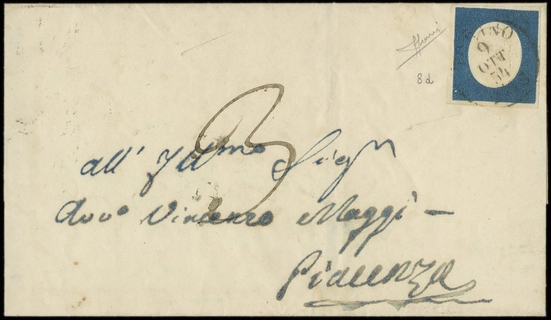 INO
9
OTT
54
8d
3
all' Illmo Sigr
Avvo Vincenzo Maggi —
Piacenza